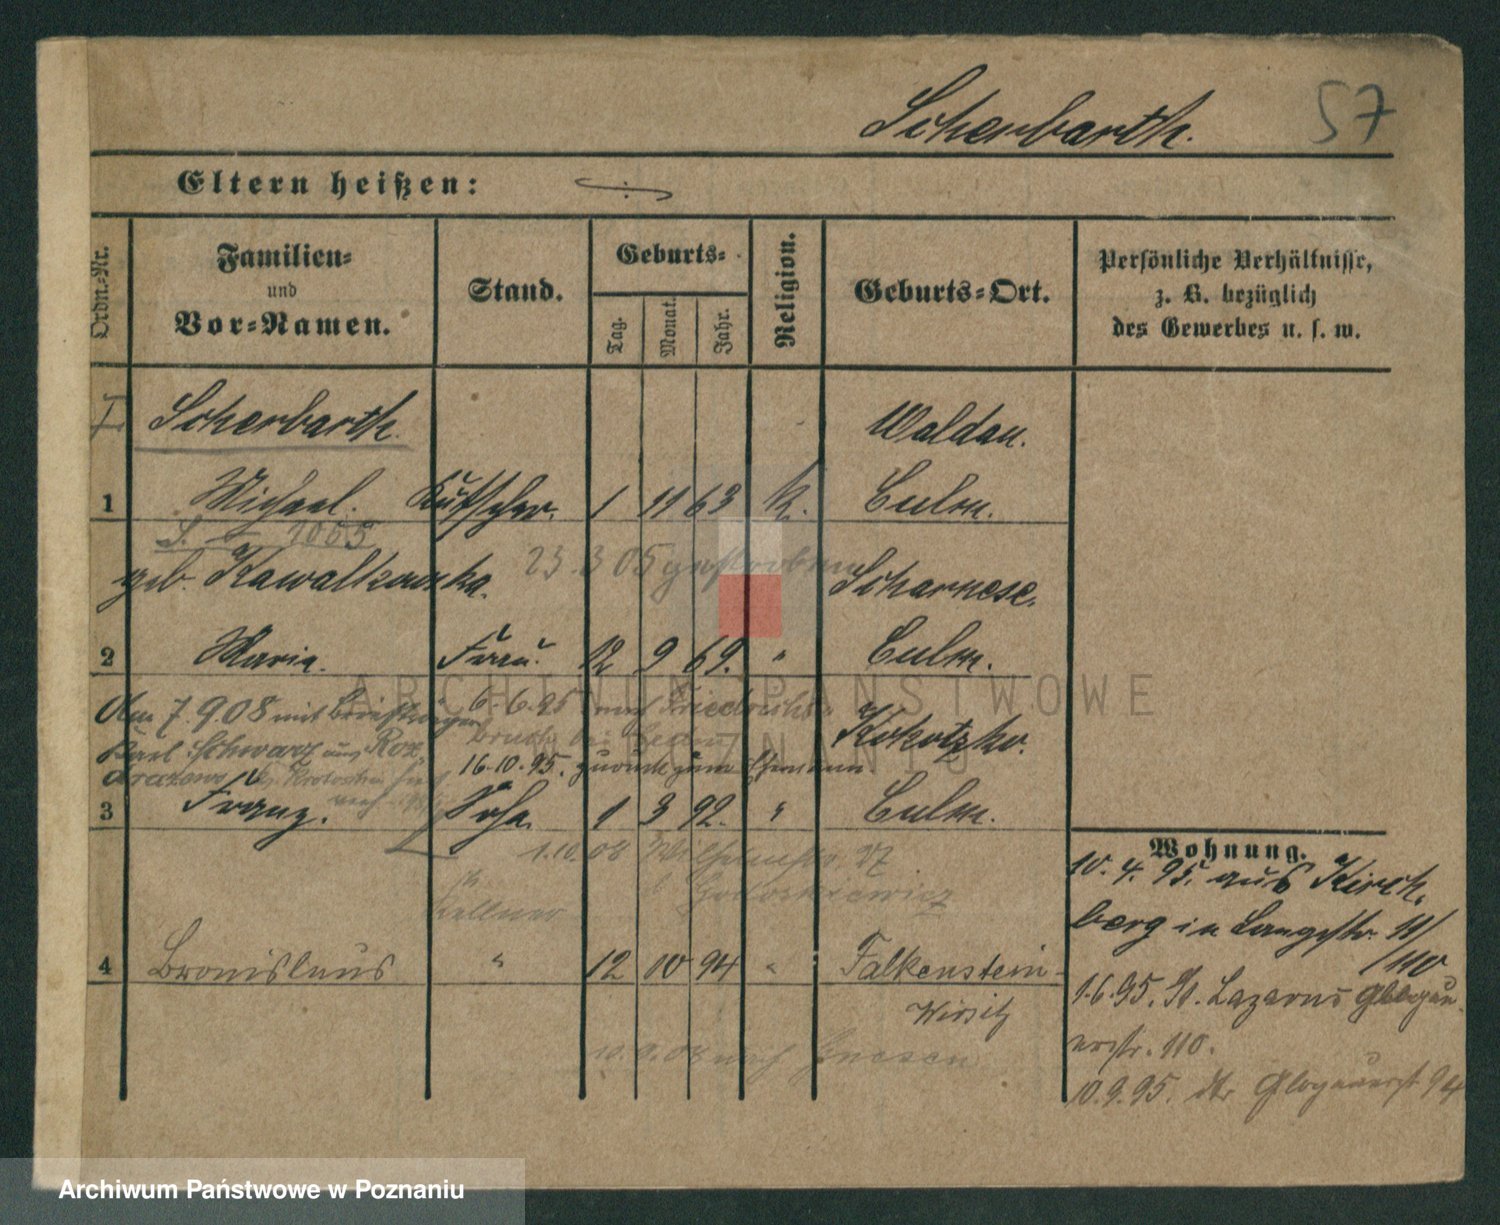 Scherbarth.
57
Eltern heißen:
Ordn.-Nr.
Familien-
und
Vor-Namen.
Stand.
Geburts-
Tag.
Monat.
Jahr.
Religion.
Geburts-Ort.
Persönliche Verhältnisse,
z. B. bezüglich
des Gewerbes u. s. w.
I Scherbarth. Waldau.
1 Michael. Kutscher. 1 11 63 k. Culm.
23.3 05 gestorben
geb. Kawalkowska. Scharnese.
2 Maria. Frau. 12 9 69. " Culm.
Am 7.9.08 mit
6.6.95 nach
Karl Schwarz aus
16.10.95. zurück zum Ehemann
Kokotzko.
3 Franz. Sohn. 1 3 92. " Culm.
1.10.08
Kellner
4 Bronislaus " 12 10 94 " Falkenstein-
Wirsitz
nach Gnesen
Wohnung.
10. 4. 95. aus Kirch-
berg in Langestr. 11/
110
1.6.95. St. Lazarus Glogau-
erstr. 110.
10.9.95. Glogauerst 94
ARCHIWUM PAŃSTWOWE
W POZNANIU
Archiwum Państwowe w Poznaniu